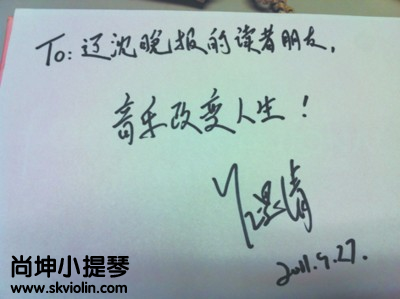 To: 辽沈晚报的读者朋友,
音乐改变人生!
2011.9.27.
尚坤小提琴
www.skviolin.com